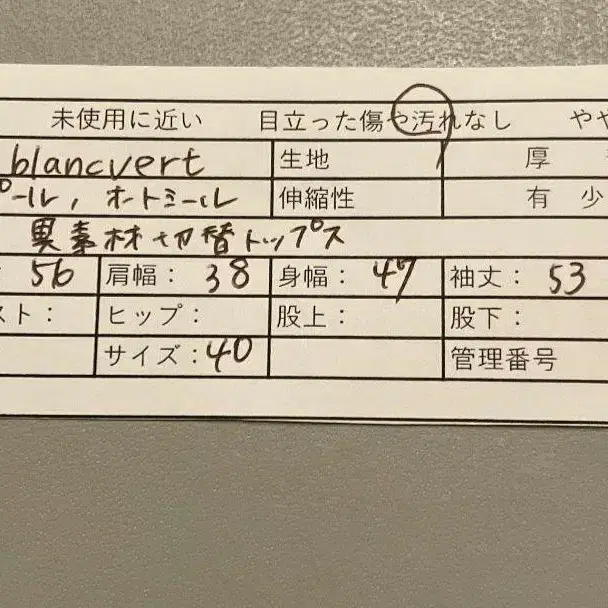 未使用に近い 目立った傷や汚れなし やや
blancvert 生地 厚
ール, オートミール 伸縮性 有 少
異素材切替トップス
56 肩幅： 38 身幅： 47 袖丈： 53
スト： ヒップ： 股上： 股下：
サイズ： 40 管理番号